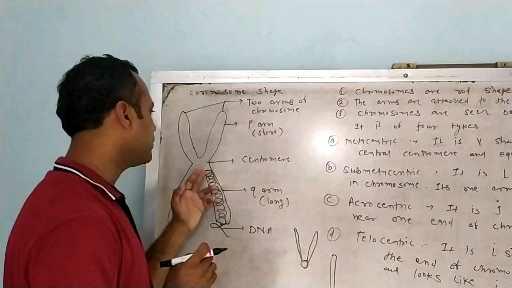 chromosome shape
Two arms of
chromosome
P arm
(short)
Centomere
q arm
(long)
DNA
① chromosomes are rod shape
② The arms are attached to the
③ chromosomes are seen
It is of four types
ⓐ metacentric : It is V sha
central centromere and equ
ⓑ Submetacentric : It is L
in chromosome. Its one arm
ⓒ Acrocentric → It is j
near one end of chr
ⓓ Telocentric - It is i s
the end of chromo
and looks like i